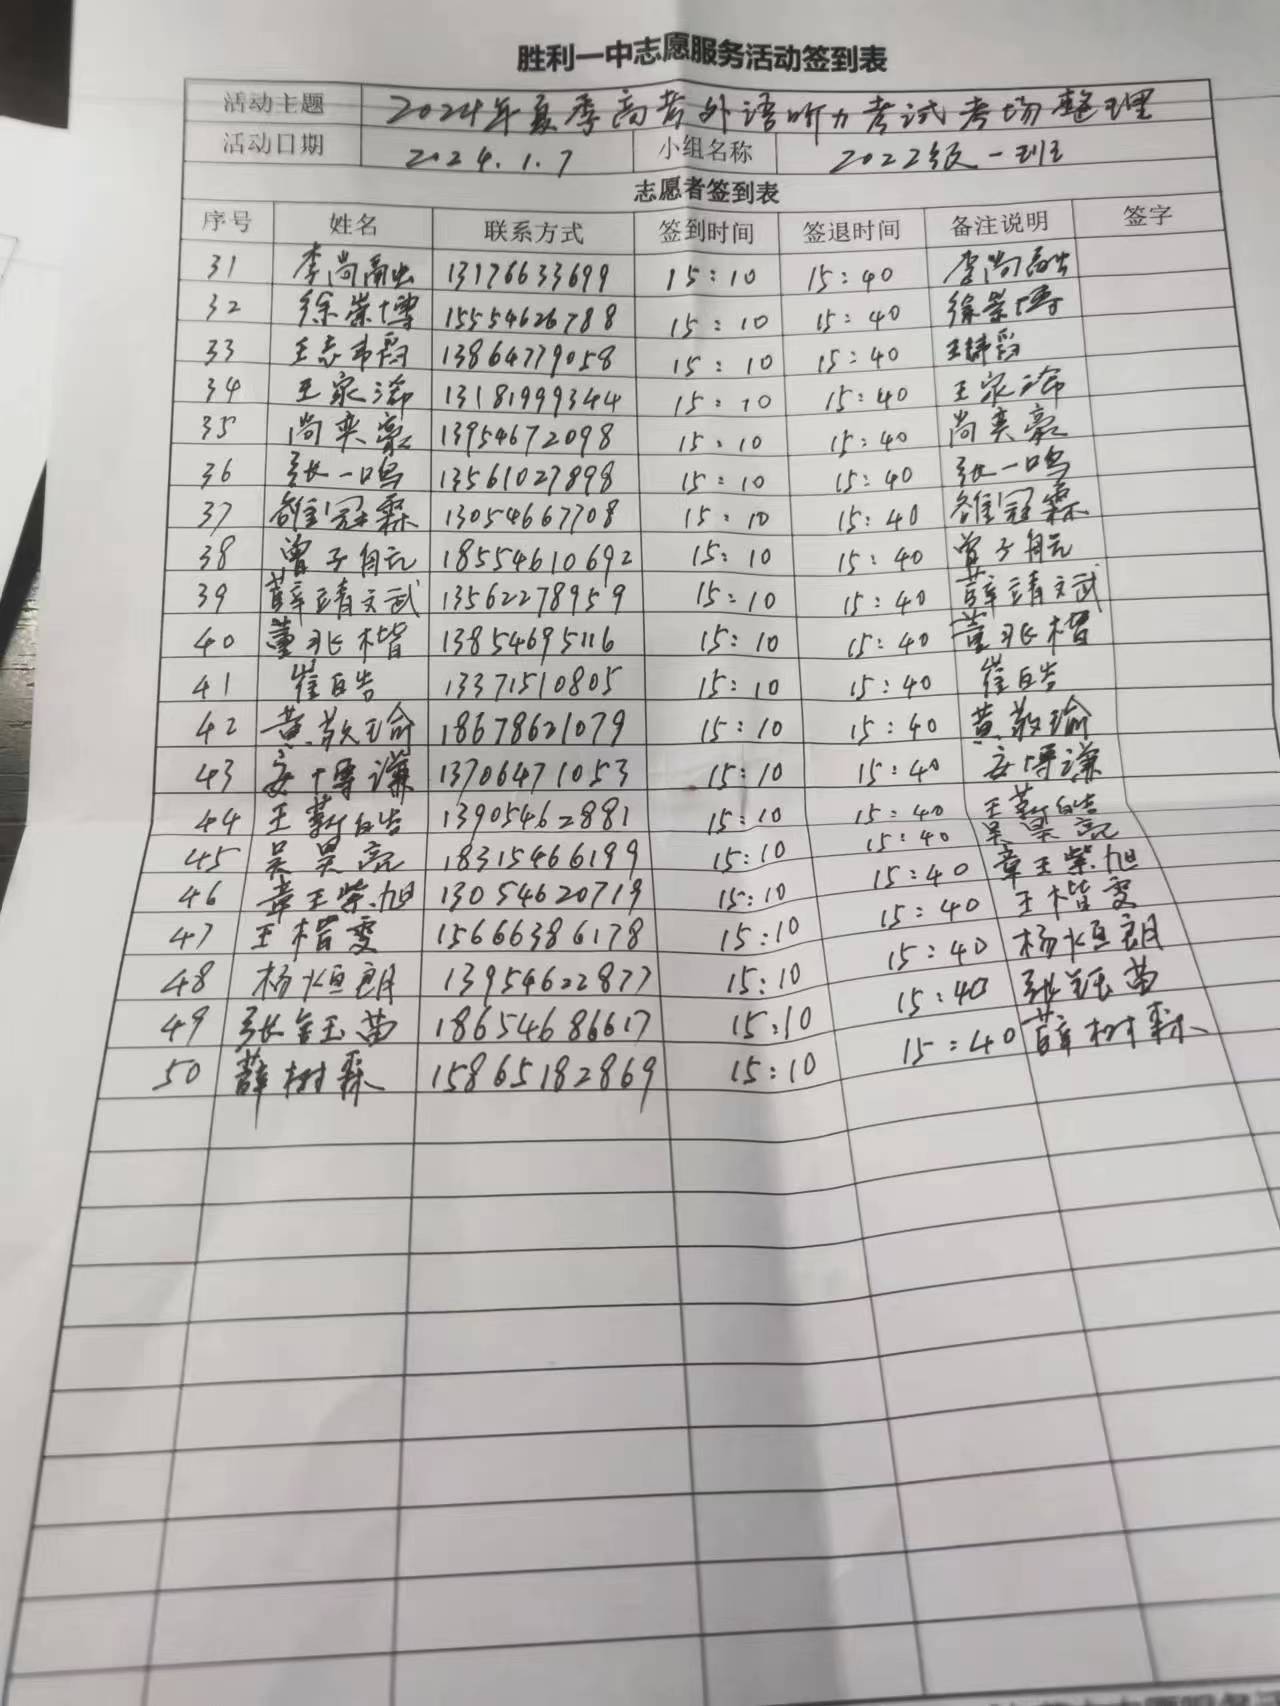 胜利一中志愿服务活动签到表
活动主题 2024年夏季高考外语听力考试考场整理
活动日期 2024.1.7 小组名称 2022级一班
志愿者签到表
序号 姓名 联系方式 签到时间 签退时间 备注说明 签字
31 李尚 13176633699 15:10 15:40 李尚
32 徐崇博 15554626788 15:10 15:40 徐崇博
33 王志韦 13864779058 15:10 15:40 王
34 王家 13181999344 15:10 15:40 王家
35 尚奕豪 13954672098 15:10 15:40 尚奕豪
36 张一鸣 13561027898 15:10 15:40 张一鸣
37 雒冠霖 13054667708 15:10 15:40 雒冠霖
38 曾子航 18554610692 15:10 15:40 曾子航
39 薛靖文武 13562278959 15:10 15:40 薛靖文武
40 董兆楷 13854695116 15:10 15:40 董兆楷
41 崔皓 13371510805 15:10 15:40 崔皓
42 黄敬瑜 18678621079 15:10 15:40 黄敬瑜
43 安博谦 13706471053 15:10 15:40 安博谦
44 王皓 13905462881 15:10 15:40 王皓
45 吴昊亮 18315466199 15:10 15:40 吴昊亮
46 章王紫旭 13054620719 15:10 15:40 章王紫旭
47 王楷雯 15666386178 15:10 15:40 王楷雯
48 杨恒朗 13954622877 15:10 15:40 杨恒朗
49 张钰苗 18654686617 15:10 15:40 张钰苗
50 薛树霖 15865182869 15:10 15:40 薛树霖